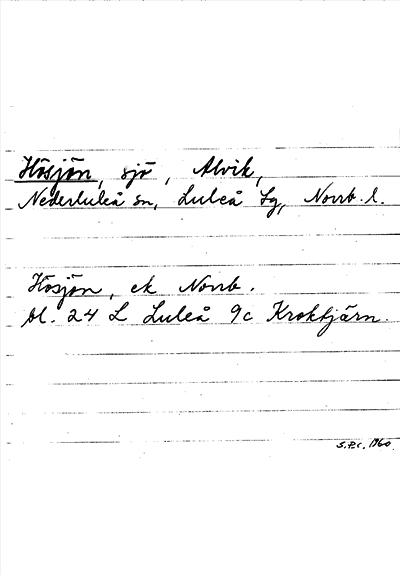 Hösjön, sjö, Alvik,
Nederluleå sn, Luleå lg, Norrb. l.
Hösjön, ek Norrb.
bl. 24 L Luleå 9c Kroktjärn.
1960